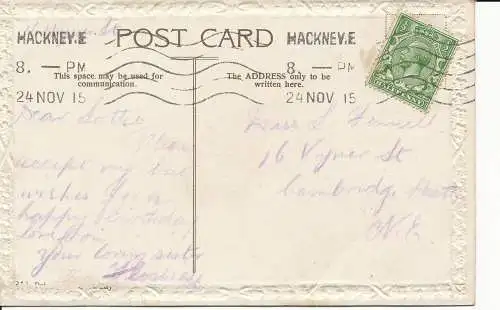 HACKNEY.E POST CARD HACKNEY.E
8. — PM
This space may be used for
communication.
The ADDRESS only to be
written here.
8. — PM
24 NOV 15
24 NOV 15
Dear Lottie
Please
accept my best
wishes for a
happy birthday
love from
your loving sister
Miss L
16 Vyner St
Cambridge Heath
N.E.